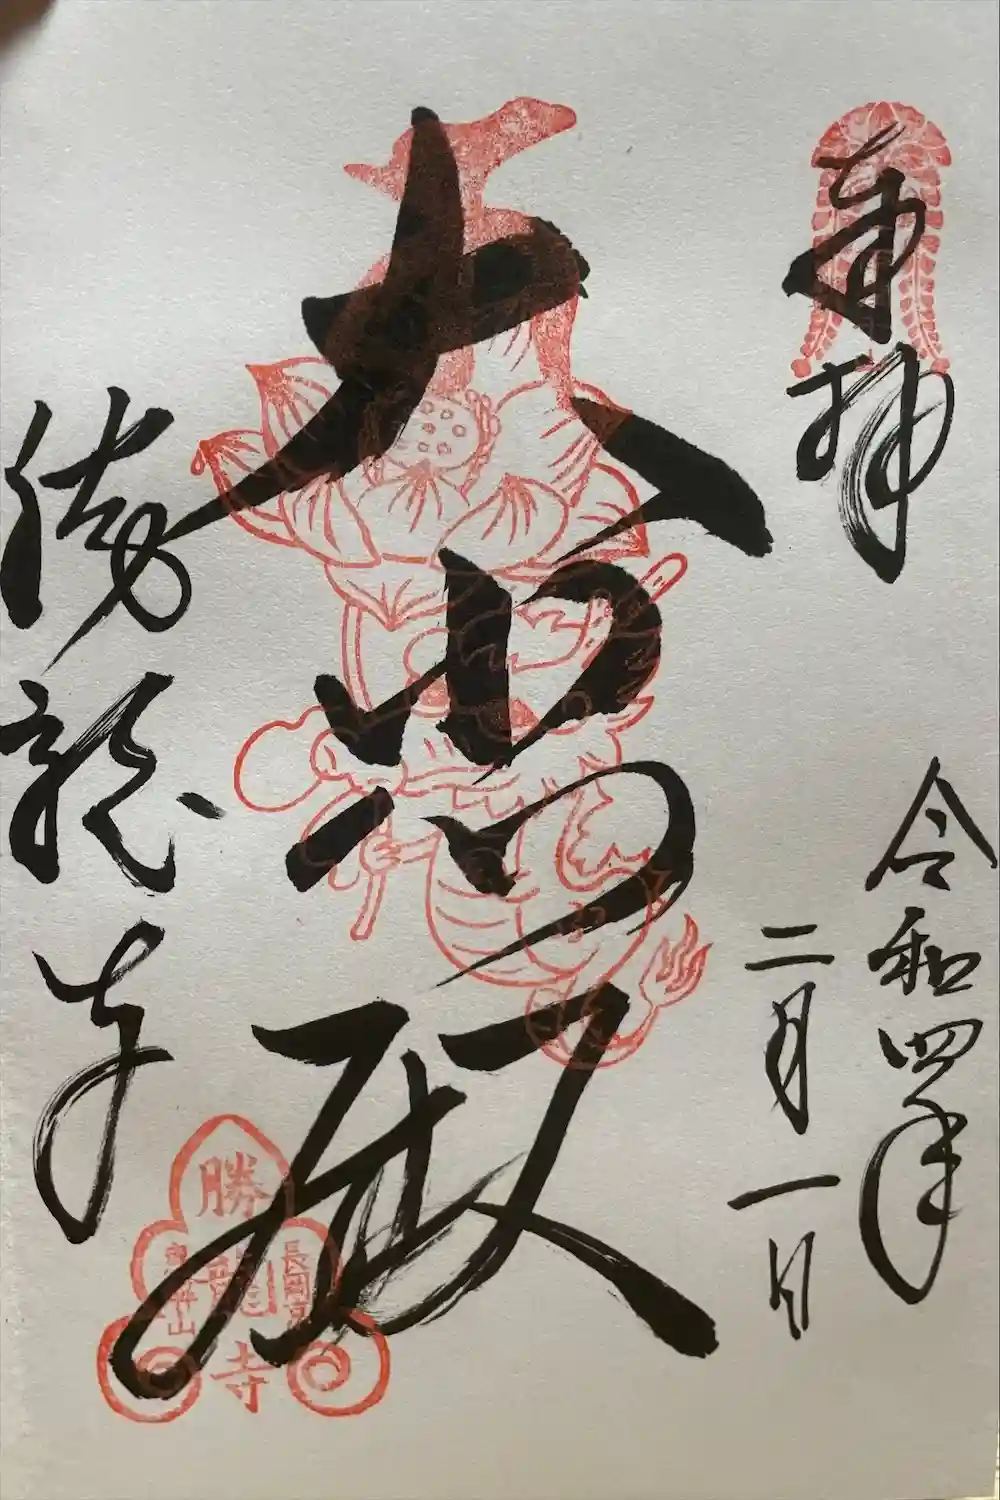 奉拝
令和四年
二月一日
大悲殿
勝龍寺
勝
龍
寺
長岡京
山